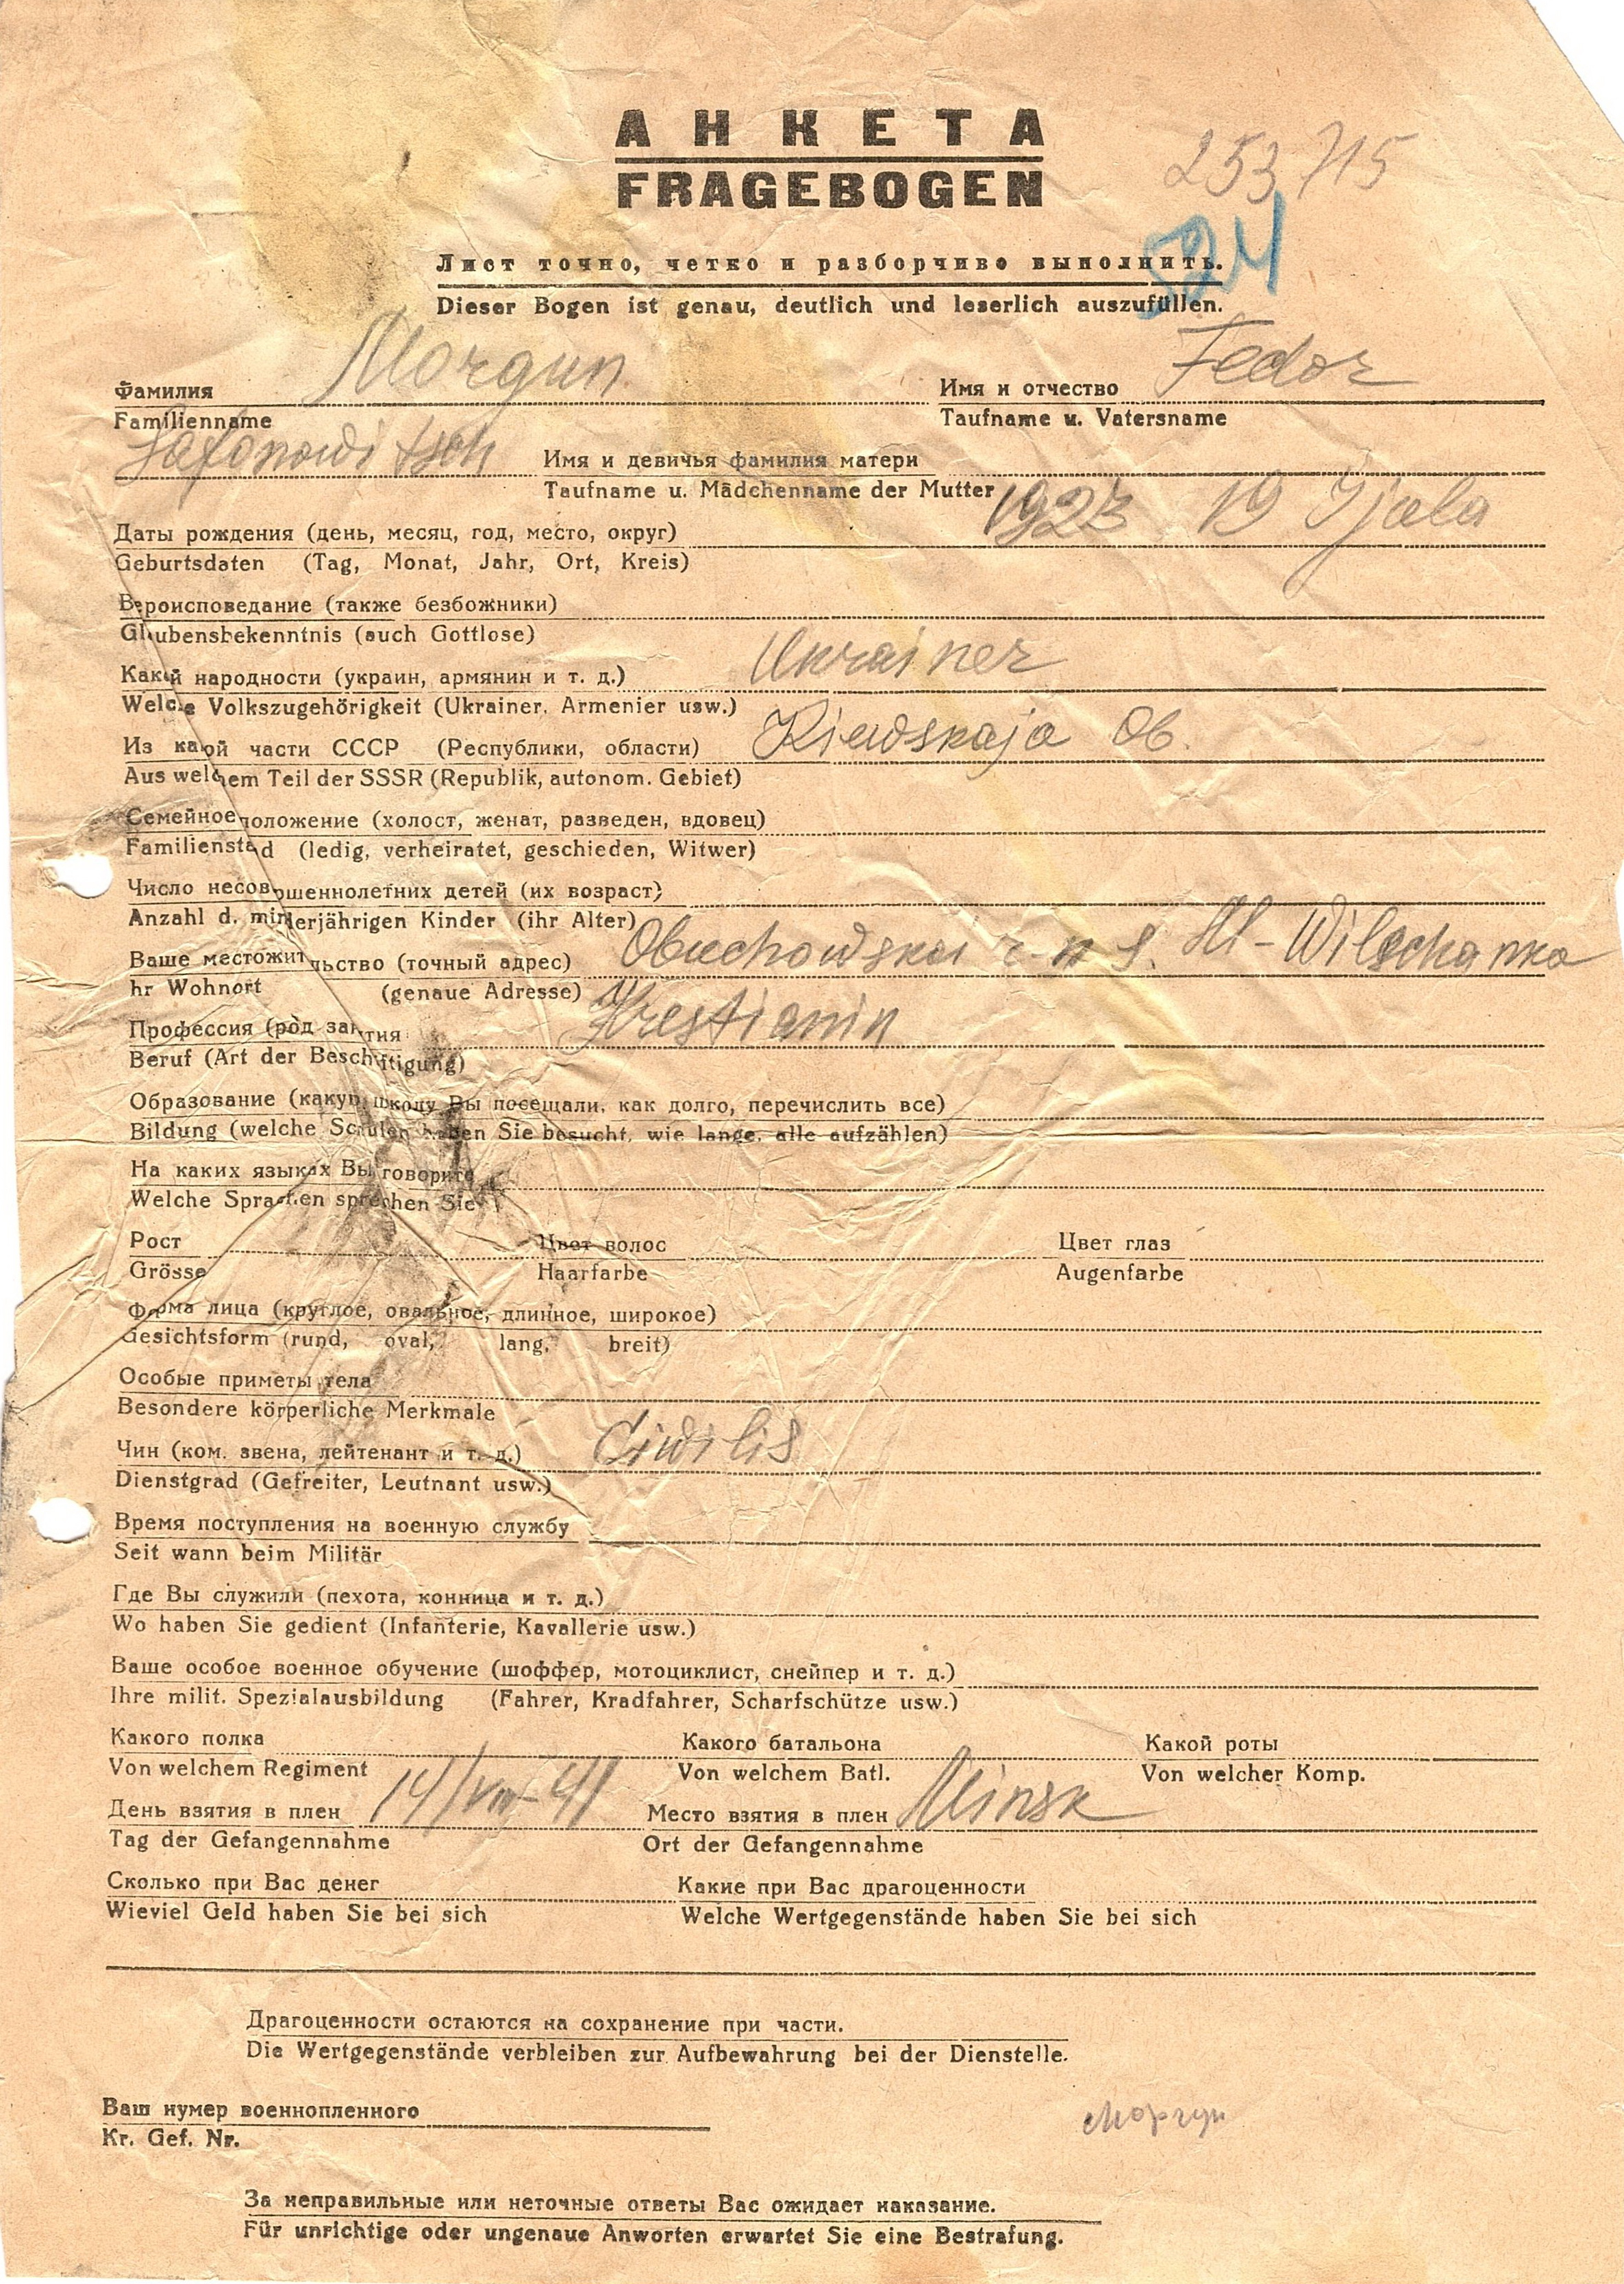 АНКЕТА
253 715
FRAGEBOGEN
Лист точно, четко и разборчиво выполнить.
Dieser Bogen ist genau, deutlich und leserlich auszufüllen.
Фамилия Morgun Имя и отчество Fedor
Familienname Taufname u. Vatersname
Safonowitsch Имя и девичья фамилия матери
Taufname u. Mädchenname der Mutter
Даты рождения (день, месяц, год, место, округ) 1923 19 Ijula
Geburtsdaten (Tag, Monat, Jahr, Ort, Kreis)
Вероисповедание (также безбожники)
Glaubensbekenntnis (auch Gottlose)
Какой народности (украин, армянин и т. д.) Ukrainer
Welche Volkszugehörigkeit (Ukrainer, Armenier usw.)
Из какой части СССР (Республики, области) Kiewskaja Ob.
Aus welchem Teil der SSSR (Republik, autonom. Gebiet)
Семейное положение (холост, женат, разведен, вдовец)
Familienstand (ledig, verheiratet, geschieden, Witwer)
Число несовершеннолетних детей (их возраст)
Anzahl d. minderjährigen Kinder (ihr Alter)
Ваше местожительство (точный адрес) Obuchowskoi r-n s. Ml-Wilschanka
hr Wohnort (genaue Adresse)
Профессия (род занятия Krestianin
Beruf (Art der Beschäftigung)
Образование (какую школу Вы посещали, как долго, перечислить все)
Bildung (welche Schulen haben Sie besucht, wie lange, alle aufzählen)
На каких языках Вы говорите
Welche Sprachen sprechen Sie
Рост Цвет волос Цвет глаз
Grösse Haarfarbe Augenfarbe
Форма лица (круглое, овальное, длинное, широкое)
Gesichtsform (rund, oval, lang, breit)
Особые приметы тела
Besondere körperliche Merkmale
Чин (ком. звена, лейтенант и т. д.) Ciwilis
Dienstgrad (Gefreiter, Leutnant usw.)
Время поступления на военную службу
Seit wann beim Militär
Где Вы служили (пехота, конница и т. д.)
Wo haben Sie gedient (Infanterie, Kavallerie usw.)
Ваше особое военное обучение (шоффер, мотоциклист, снейпер и т. д.)
Ihre milit. Spezialausbildung (Fahrer, Kradfahrer, Scharfschütze usw.)
Какого полка Какого батальона Какой роты
Von welchem Regiment Von welchem Batl. Von welcher Komp.
День взятия в плен 14/VIII-41 Место взятия в плен Minsk
Tag der Gefangennahme Ort der Gefangennahme
Сколько при Вас денег Какие при Вас драгоценности
Wieviel Geld haben Sie bei sich Welche Wertgegenstände haben Sie bei sich
Драгоценности остаются на сохранение при части.
Die Wertgegenstände verbleiben zur Aufbewahrung bei der Dienstelle.
Ваш нумер военнопленного
Моргун
Kr. Gef. Nr.
За неправильные или неточные ответы Вас ожидает наказание.
Für unrichtige oder ungenaue Anworten erwartet Sie eine Bestrafung.